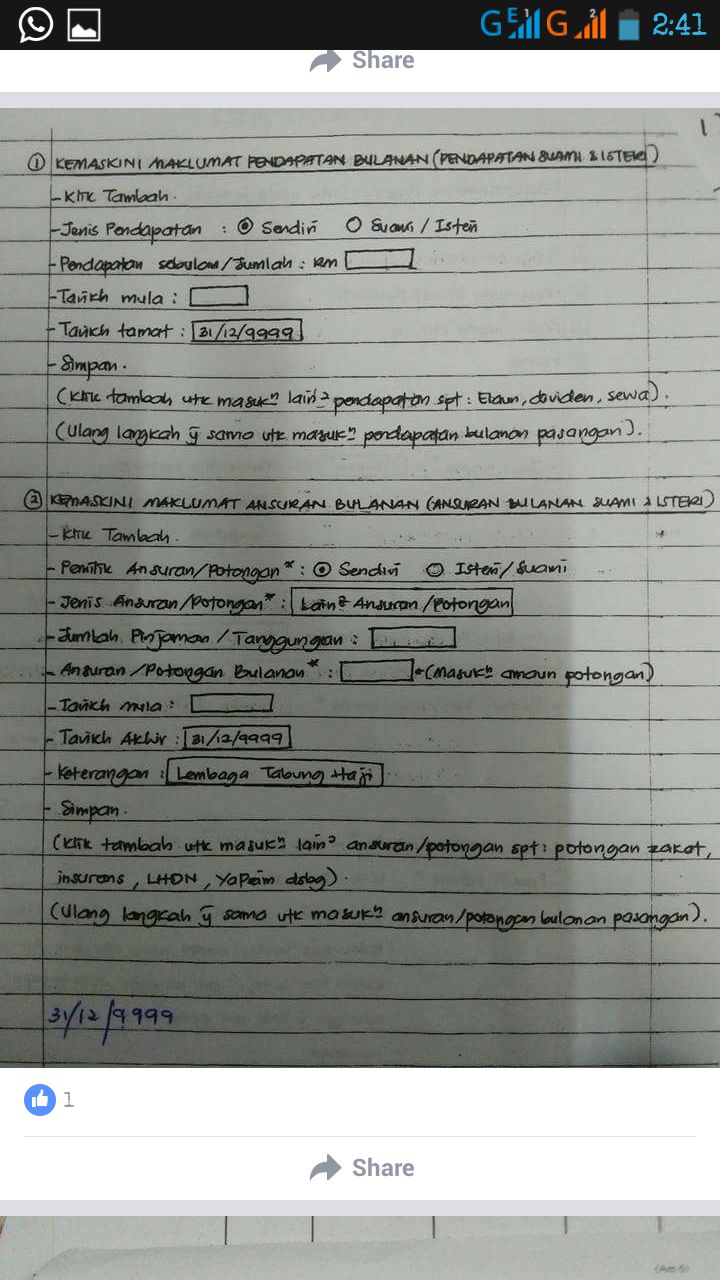 GE 1 G 2 2:41
Share
1
① KEMASKINI MAKLUMAT PENDAPATAN BULANAN (PENDAPATAN SUAMI & ISTERI)
- Klik Tambah.
- Jenis Pendapatan : Sendiri Suami / Isteri
- Pendapatan sebulan/Jumlah : RM
- Tarikh mula :
- Tarikh tamat : 31/12/9999
- Simpan.
(Klik tambah utk masukⁿ lain² pendapatan spt : Elaun, dividen, sewa).
(Ulang langkah ȳ sama utk masukⁿ pendapatan bulanan pasangan).
② KEMASKINI MAKLUMAT ANSURAN BULANAN (ANSURAN BULANAN SUAMI & ISTERI)
- Klik Tambah.
- Pemilik Ansuran/Potongan* : Sendiri Isteri/Suami
- Jenis Ansuran/Potongan* : Lain² Ansuran/Potongan
- Jumlah Pinjaman / Tanggungan :
- Ansuran/Potongan Bulanan* : ←(Masukⁿ amaun potongan)
- Tarikh mula :
- Tarikh Akhir : 31/12/9999
- Keterangan : Lembaga Tabung Haji
- Simpan.
(Klik tambah utk masukⁿ lain² ansuran/potongan spt : potongan zakat,
insurans, LHDN, Yapeim dsbg).
(Ulang langkah ȳ sama utk masukⁿ ansuran/potongan bulanan pasangan).
31/12/9999
1
Share